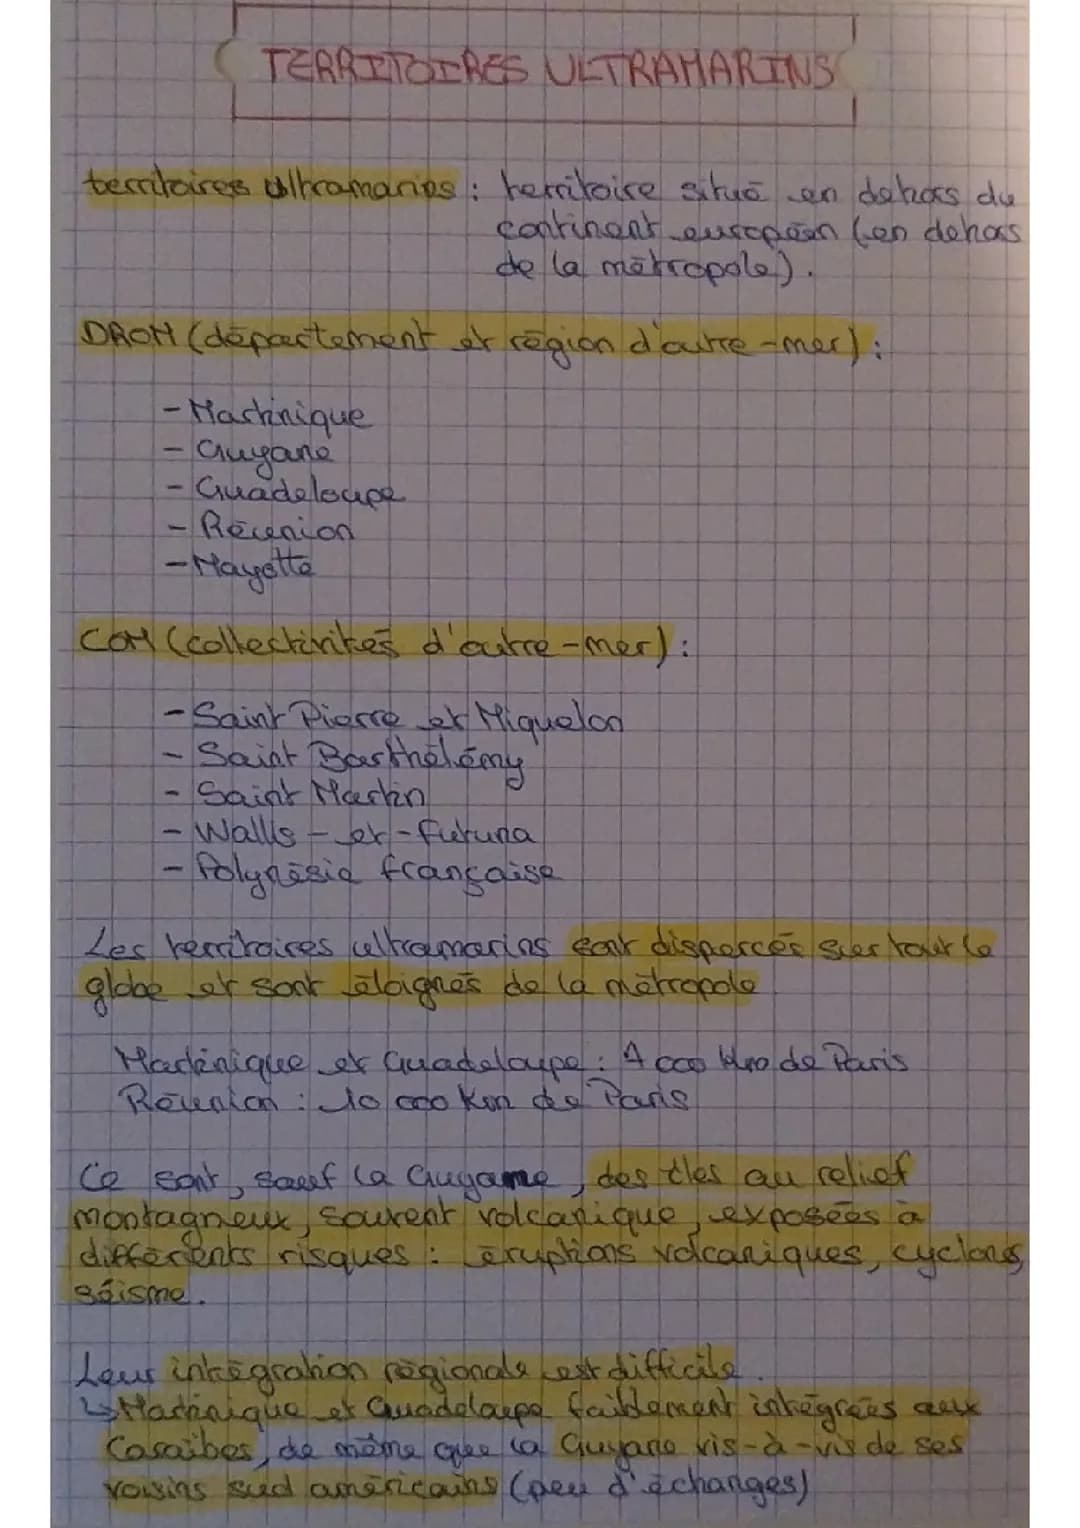 TERRITOIRES ULTRAMARINS
territoires ultramarins : territoire situé en dehors du
continent européen (en dehors
de la métropole).
DROM (département et région d'outre-mer) :
- Martinique
- Guyane
- Guadeloupe
- Réunion
- Mayotte
COM (collectivités d'outre-mer) :
- Saint Pierre et Miquelon
- Saint Barthélémy
- Saint Martin
- Wallis-et-Futuna
- Polynésie française
Les territoires ultramarins sont dispersés sur tout le
globe et sont éloignés de la métropole
Martinique et Guadeloupe : 7 000 km de Paris
Réunion : 10 000 km de Paris
Ce sont, sauf la Guyane, des îles au relief
montagneux, souvent volcanique, exposées à
différents risques : éruptions volcaniques, cyclons,
séisme.
Leur intégration régionale est difficile.
↳ Martinique et Guadeloupe faiblement intégrées aux
Caraïbes, de même que la Guyane vis-à-vis de ses
voisins sud américains (peu d'échanges)